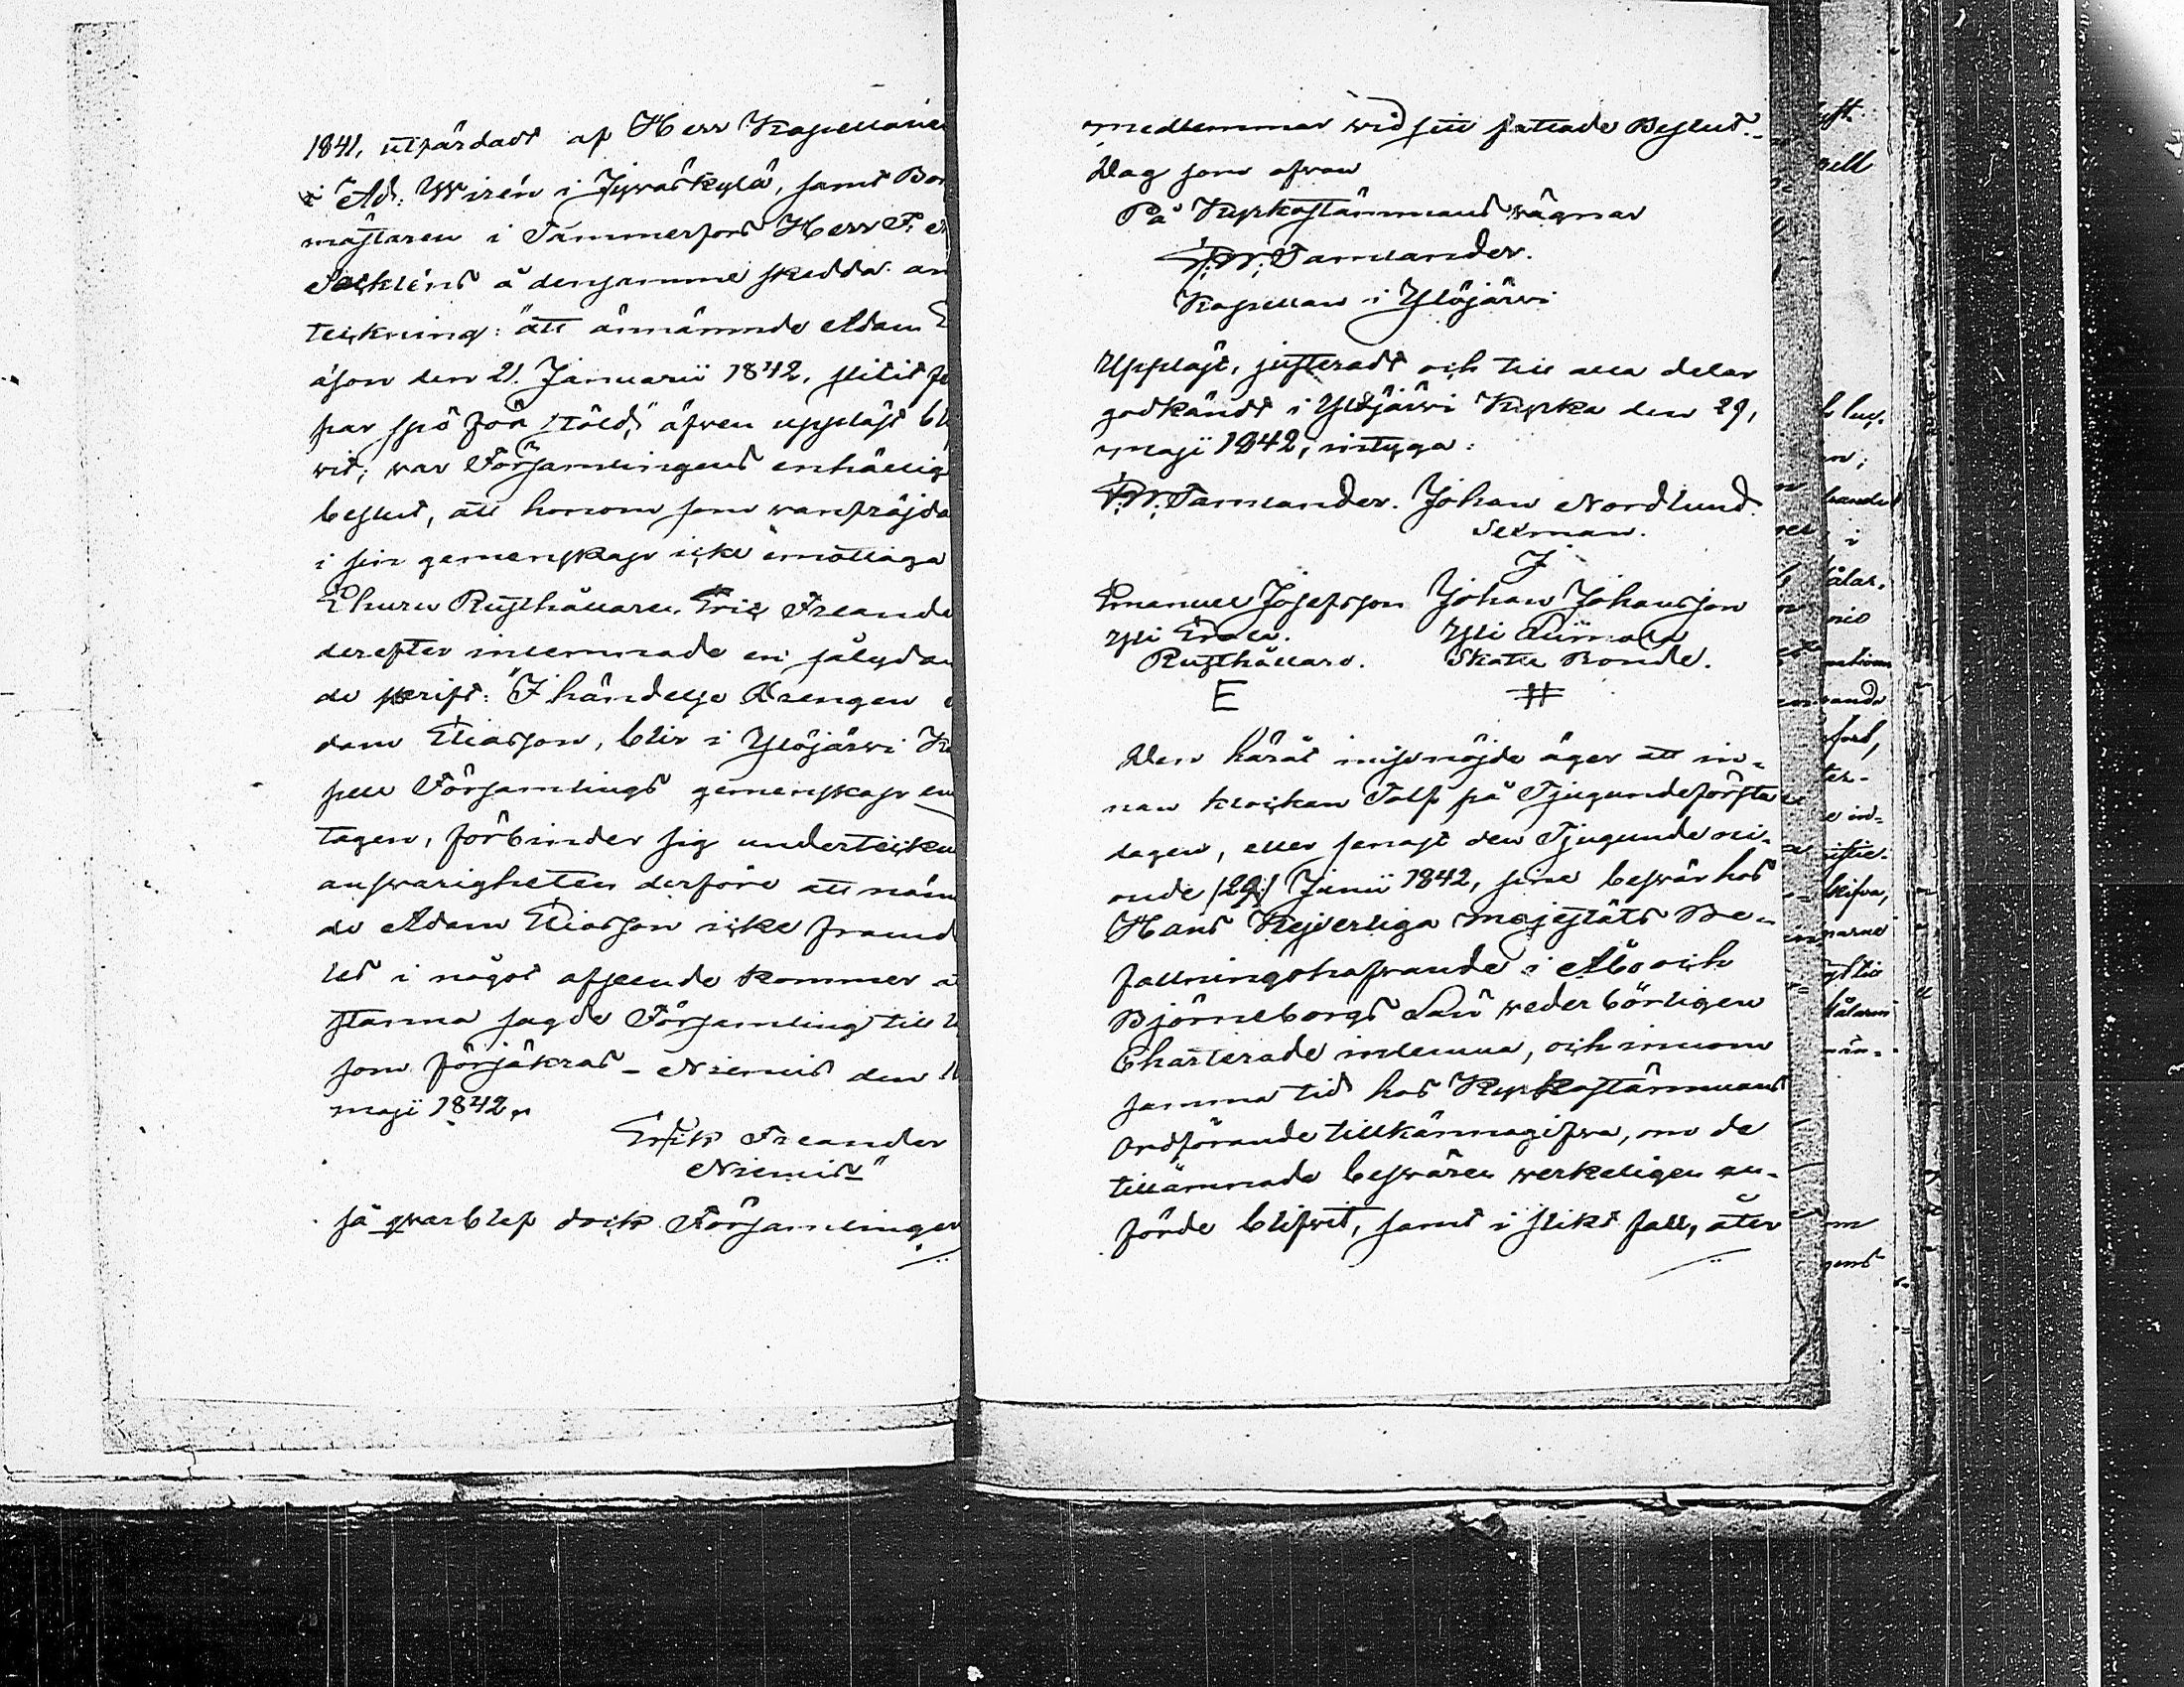 1841, utfärdadt af Herr Kapellane
i Ad: Wirén i Jywäskylä, samt Bor
mästaren i Tammerfors Herr F.
å densamme skedda an
teckning: "att ännämnde Adam E
åson den 21. Januarii 1842, slitit
par spö för stöld," äfwen uppläst bl
wit; war Församlingens enhällig
beslut, att honom som wanfräjda
i sin gemenskap icke emottaga
Ehuru Rusthållaren Eric Freande
derefter inlemnade en sålydan
de skrift: "I händelse Drengen
dam Eliasson, blir i Ylöjärwi Ka
pell Församlings gemenskap en
tagen, förbinder sig underteckn
answarigheten derföre att näm
de Adam Eliasson icke framd
les i något afseende kommer a
stanna sagde Församling till
som försäkras - Niemis den
maji 1842."
Erik Freander
Niemis"
så qwarblef dock Församlingen
medlemmar wid sitt fattade Beslut.
Dag som ofwan
På Kyrkostämmans wägnar
F: W: Tamlander.
Kapellan i Ylöjärwi
Uppläst, justeradt och till alla delar
godkändt i Ylöjärwi Kyrka den 29,
maji 1842, intyga:
F: W: Tamlander. Johan Nordlund.
J
Emanuel Josefsson Johan Johansson
Yli Yli
Rusthållare. Skatte Bonde.
E #
Den häråt missnöjde äger att in-
nan klockan Tolf på Tjugundeförsta
dagen, eller senast den Tjugunde ni-
onde /29:/ Junii 1842, sine beswär hos
Hans Kejserliga Majestäts Be-
fallningshafwande i Åbo och
Björneborgs Län wederbörligen
Charterade inlemna, och innom
samma tid hos Kyrkostämmans
Ordförande tillkännagifwa, om de
tillämnade beswären werkeligen an-
förde blifwit, samt i slikt fall, åter